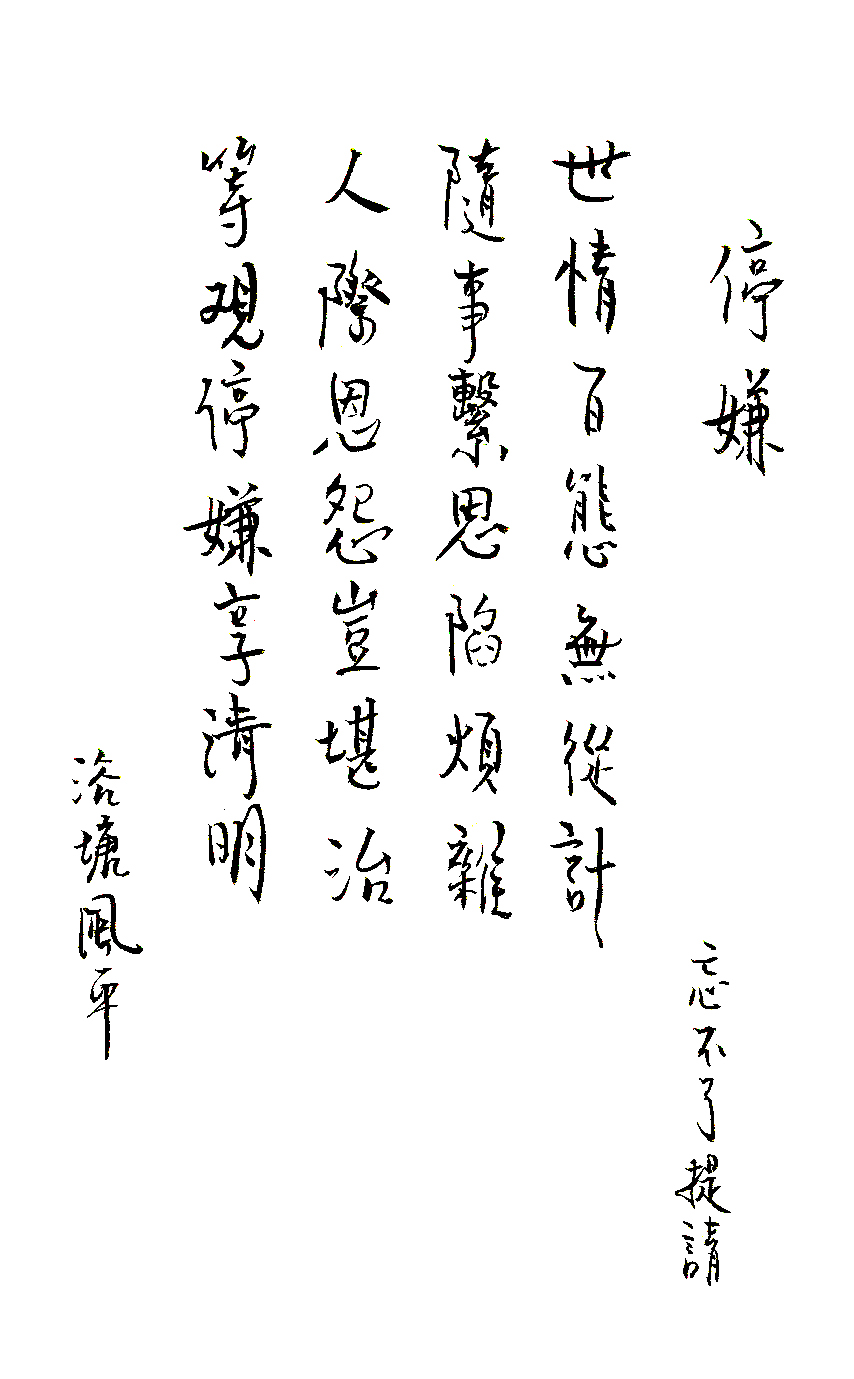 停嫌
忘不了提請
世情百態無從計
隨事繫思陷煩雜
人際恩怨豈堪治
等观停嫌享清明
浴塘風平